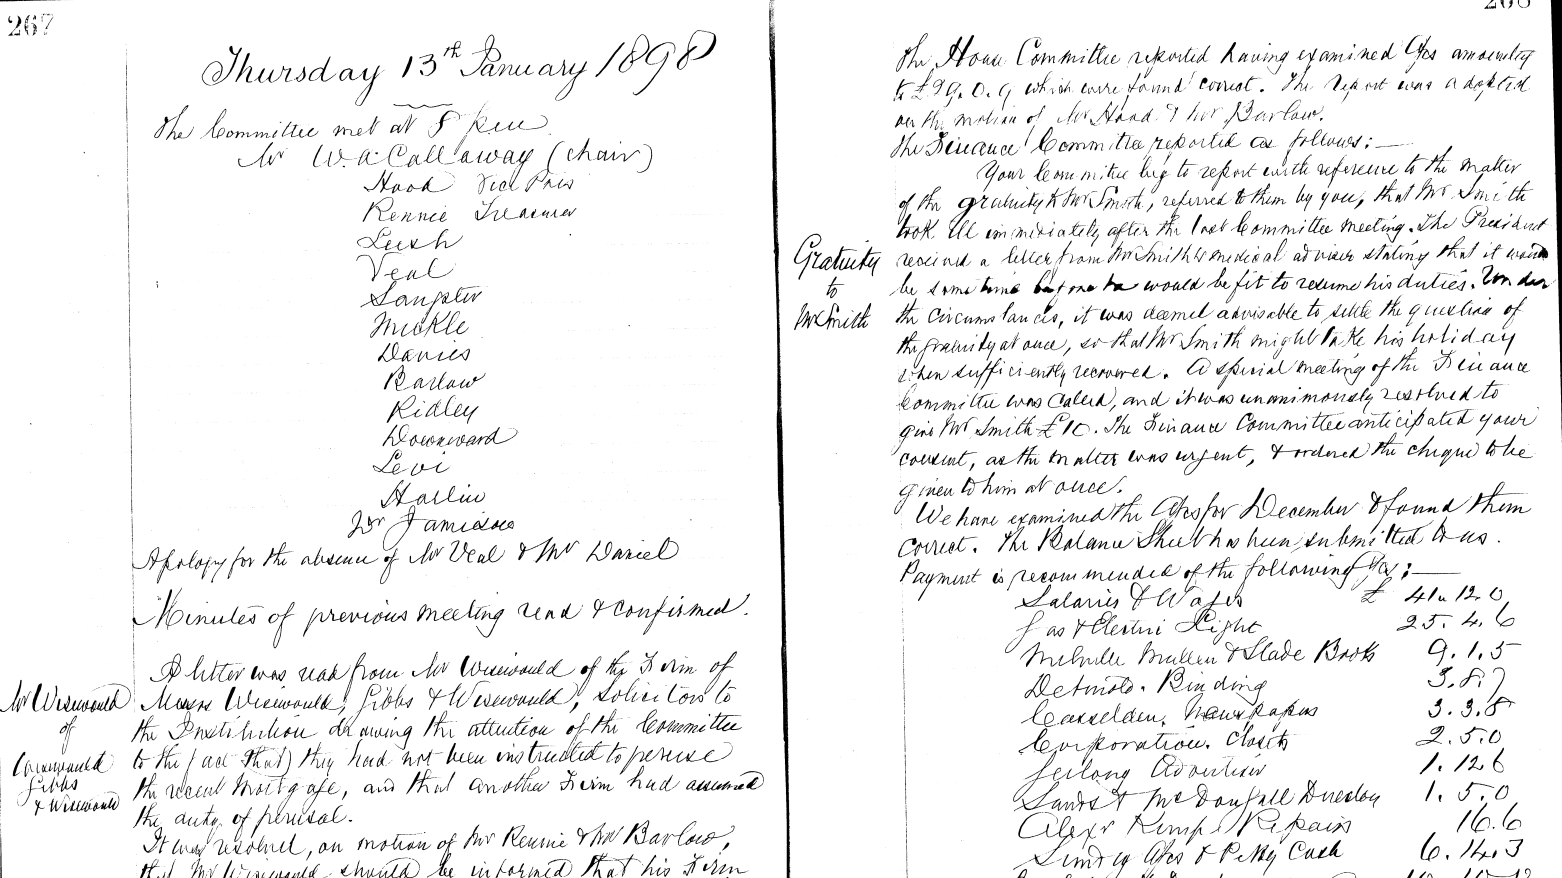 267
Thursday 13th January 1898
The Committee met at 8 p.m.
Mr W. A. Callaway (chair)
Hood Vice Pres
Rennie Treasurer
Leish
Veal
Sangster
Mickle
Davies
Barlow
Ridley
Downward
Levi
Harlin
Dr Jamieson
Apology for the absence of Mr Veal & Mr Daniel
Minutes of previous meeting read & confirmed.
Mr Wisewould
of
Wisewould
Gibbs
& Wisewould
A letter was read from Mr Wisewould of the Firm of
Messrs Wisewould, Gibbs & Wisewould, Solicitors to
the Institution drawing the attention of the Committee
to the fact that they had not been instructed to peruse
the recent Mortgage, and that another Firm had assumed
the duty of perusal.
It was resolved, on motion of Mr Rennie & Mr Barlow,
that Mr Wisewould should be informed that his Firm
268
The House Committee reported having examined A/cs amounting
to £99.0.9 which were found correct. The report was adopted
on the motion of Mr Hood & Mr Barlow.
The Finance Committee reported as follows:—
Your Committee beg to report with reference to the matter
of the gratuity to Mr Smith, referred to them by you, that Mr Smith
took ill immediately after the last Committee meeting. The President
received a letter from Mr Smith's medical adviser stating that it would
be some time before he would be fit to resume his duties. Under
the circumstances, it was deemed advisable to settle the question of
the gratuity at once, so that Mr Smith might take his holiday
when sufficiently recovered. A special meeting of the Finance
Committee was called, and it was unanimously resolved to
give Mr Smith £10. The Finance Committee anticipated your
consent, as the matter was urgent, & ordered the cheque to be
given to him at once.
Gratuity
to
Mr Smith
We have examined the A/cs for December & found them
correct. The Balance Sheet has been submitted to us.
Payment is recommended of the following A/cs:—
Salaries & Wages £ 41.12.0
Gas & Electric Light 25.4.6
Melville Mullen & Slade Books 9.1.5
Detmold. Binding 3.8.7
Casselden. Newspapers 3.3.8
Corporation. Closets 2.5.0
Geelong Advertiser 1.12.6
Sands & McDougall Directory 1.5.0
Alexr Kemp. Repairs 16.6
Sundry A/cs & Petty Cash 6.14.3